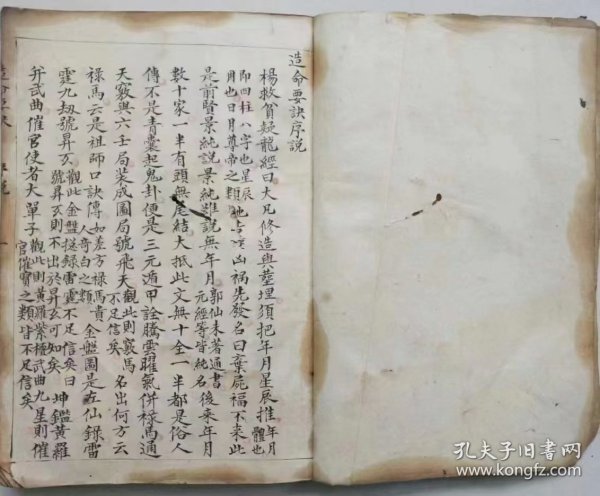 造命要訣序說
楊救貧疑龍經曰大凡修造與塟埋須把年月星辰推 年月體也
即四柱八字也星辰月也日月尊帝之類 吉凶禍先發名曰棄屍福不来此
是前賢景純說景純雖說無年月 郭仙未著通書元經等皆純名 後来年月
數十家一半有頭無尾結大抵此文無十全一半都是俗人
傳不是青囊起鬼卦便是三元遁甲詮騰雲曜氣併祿馬通
天竅與六壬局裝成圖局號飛天 觀此則竅馬不足信矣 名出何方云
祿馬云是祖師口訣傳 如差方祿馬貴人奇白之類 金盤圖是左仙錄雷
霆九劫號昇玄 觀此金盤撥錄雷霆不足信矣曰號昇玄則不出於昇玄可知矣 坤鑑黃羅
并武曲催官使者大單子 觀此則黃羅紫檀武曲九星則催官催寶之類皆不足信矣
造命要訣 序說 一
孔夫子旧书网
www.kongfz.com